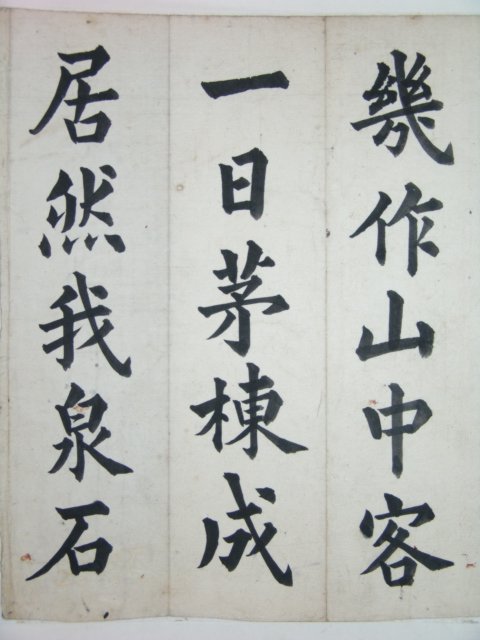 幾作山中客
一日茅棟成
居然我泉石